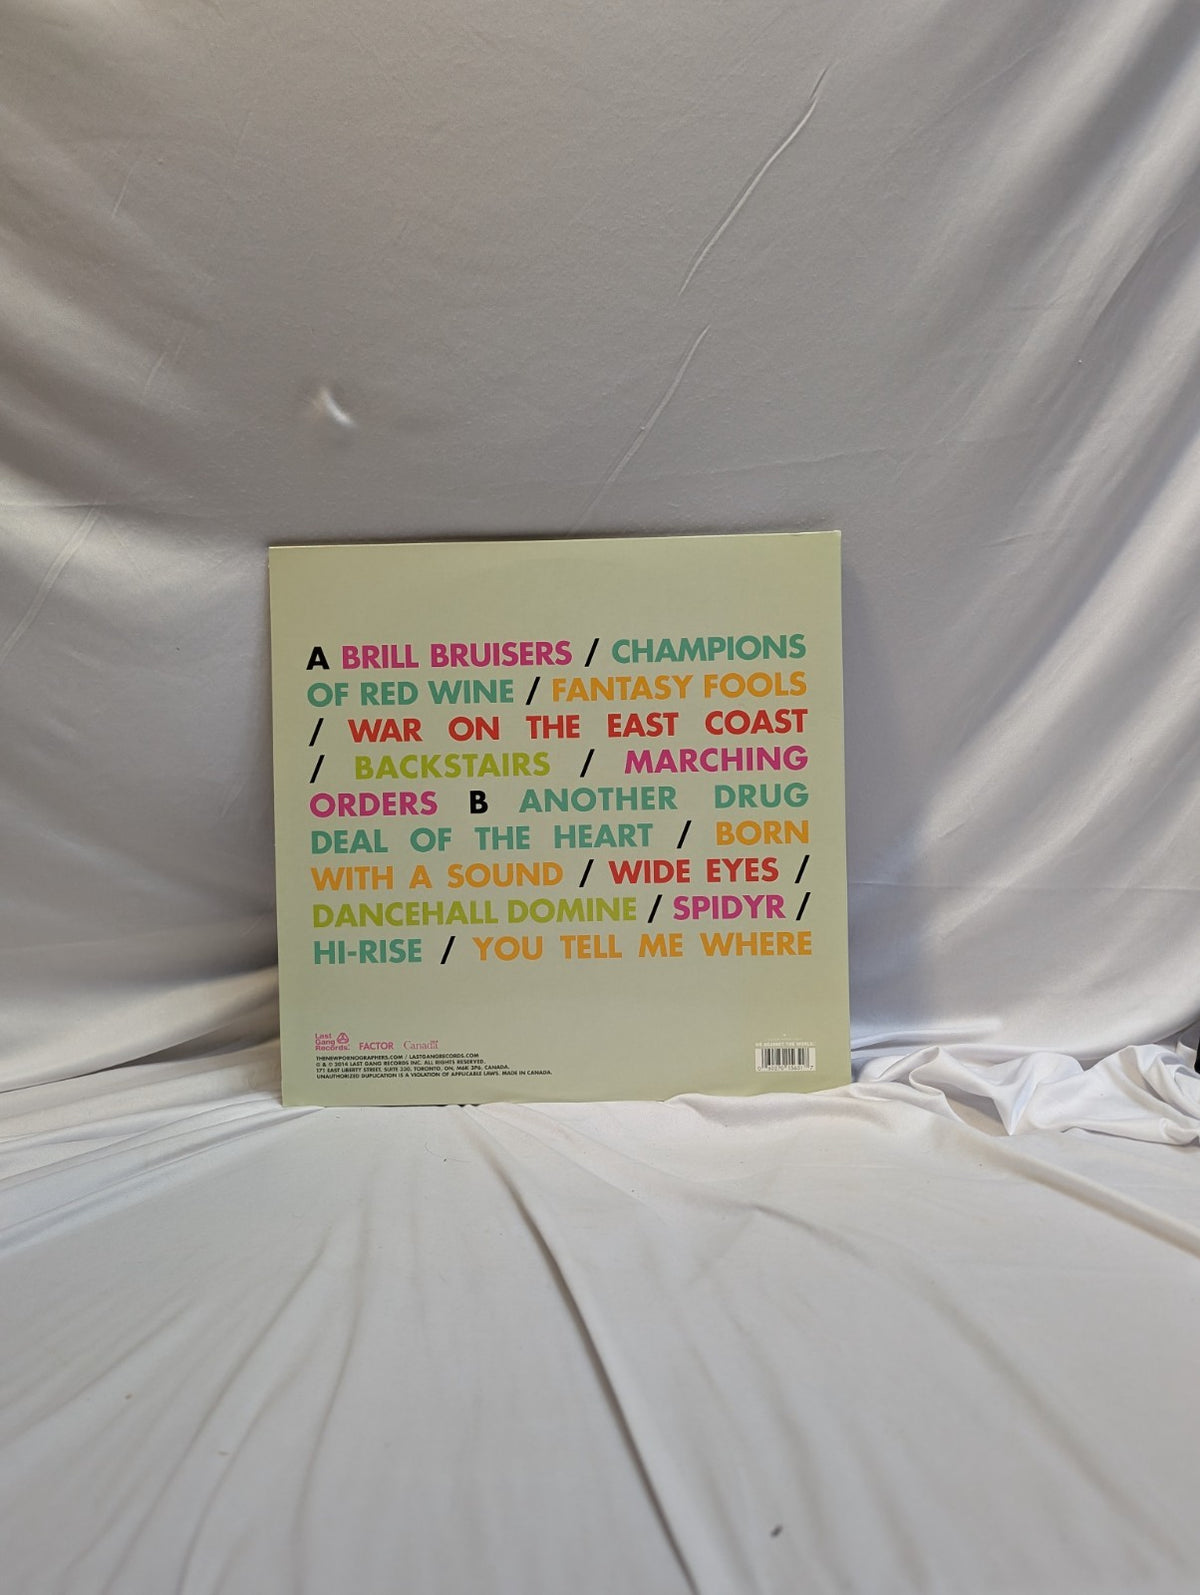 A BRILL BRUISERS / CHAMPIONS
OF RED WINE / FANTASY FOOLS
/ WAR ON THE EAST COAST
/ BACKSTAIRS / MARCHING
ORDERS B ANOTHER DRUG
DEAL OF THE HEART / BORN
WITH A SOUND / WIDE EYES /
DANCEHALL DOMINE / SPIDYR /
HI-RISE / YOU TELL ME WHERE
Last
Gang
Records
FACTOR
Canada
THENEWPORNOGRAPHERS.COM / LASTGANGRECORDS.COM
© 2014 LAST GANG RECORDS INC. ALL RIGHTS RESERVED.
171 EAST LIBERTY STREET, SUITE 330, TORONTO, ON, M6K 3P6, CANADA.
UNAUTHORIZED DUPLICATION IS A VIOLATION OF APPLICABLE LAWS. MADE IN CANADA.
US AGAINST THE WORLD.